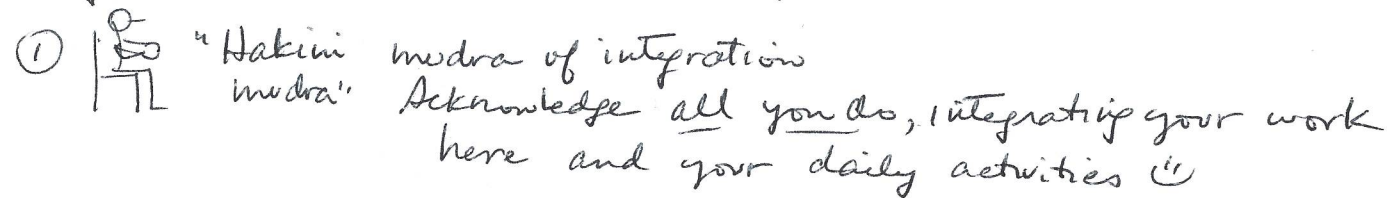 ① "Hakini mudra of integration
mudra" Acknowledge all you do, integrating your work
here and your daily activities